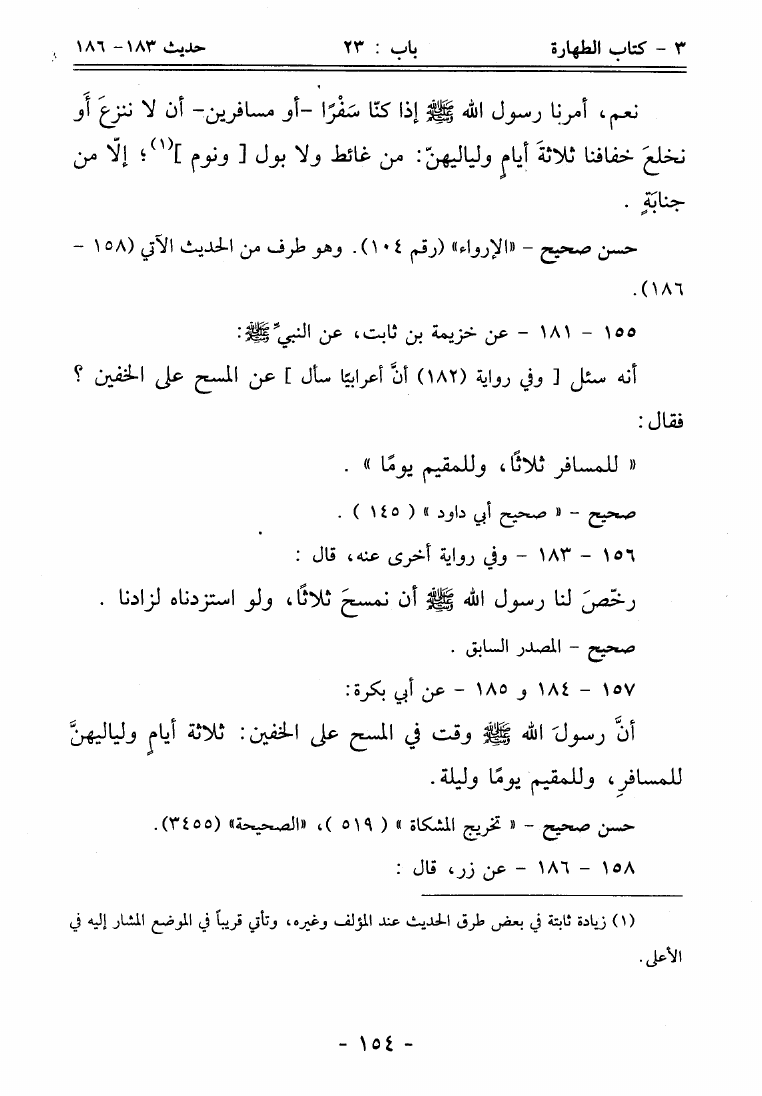 ٣ - كتاب الطهارة باب : ٢٣ حديث ١٨٣- ١٨٦
نعم، أمرنا رسول الله ﷺ إذا كنّا سَفْرًا -أو مسافرين- أن لا ننزعَ أَو
نخلعَ خفافنا ثلاثةَ أيامٍ ولياليهنّ: من غائط ولا بول [ ونوم ](١)؛ إلّا من
جنابَةٍ .
حسن صحيح - «الإرواء» (رقم ١٠٤). وهو طرف من الحديث الآتي (١٥٨ -
١٨٦).
١٥٥ - ١٨١ - عن خزيمة بن ثابت، عن النبيِّ ﷺ:
أنه سئل [ وفي رواية (١٨٢) أنَّ أعرابيًا سأل ] عن المسح على الخفين ؟
فقال:
« للمسافر ثلاثًا، وللمقيم يومًا » .
صحيح - « صحيح أبي داود » ( ١٤٥ ) .
١٥٦ - ١٨٣ - وفي رواية أخرى عنه، قال :
رخّصَ لنا رسول الله ﷺ أن نمسحَ ثلاثًا، ولو استزدناه لزادنا .
صحيح - المصدر السابق .
١٥٧ - ١٨٤ و ١٨٥ - عن أبي بكرة:
أنَّ رسولَ الله ﷺ وقت في المسح على الخفين: ثلاثة أيامٍ ولياليهنَّ
للمسافرِ، وللمقيم يومًا وليلة.
حسن صحيح - « تخريج المشكاة » ( ٥١٩ )، «الصحيحة» (٣٤٥٥).
١٥٨ - ١٨٦ - عن زر، قال :
(١) زيادة ثابتة في بعض طرق الحديث عند المؤلف وغيره، وتأتي قريباً في الموضع المشار إليه في
الأعلى.
- ١٥٤ -